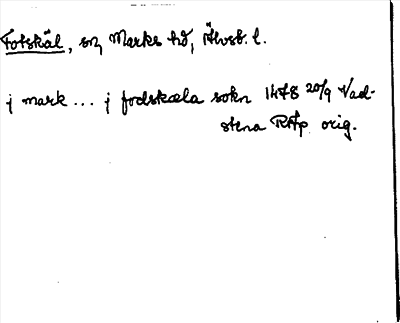 Fotskäl, sn, Marks hd, Älvsb. l.
j mark ... j fodskæla sokn 1478 20/9 Vad-
stena RAp orig.